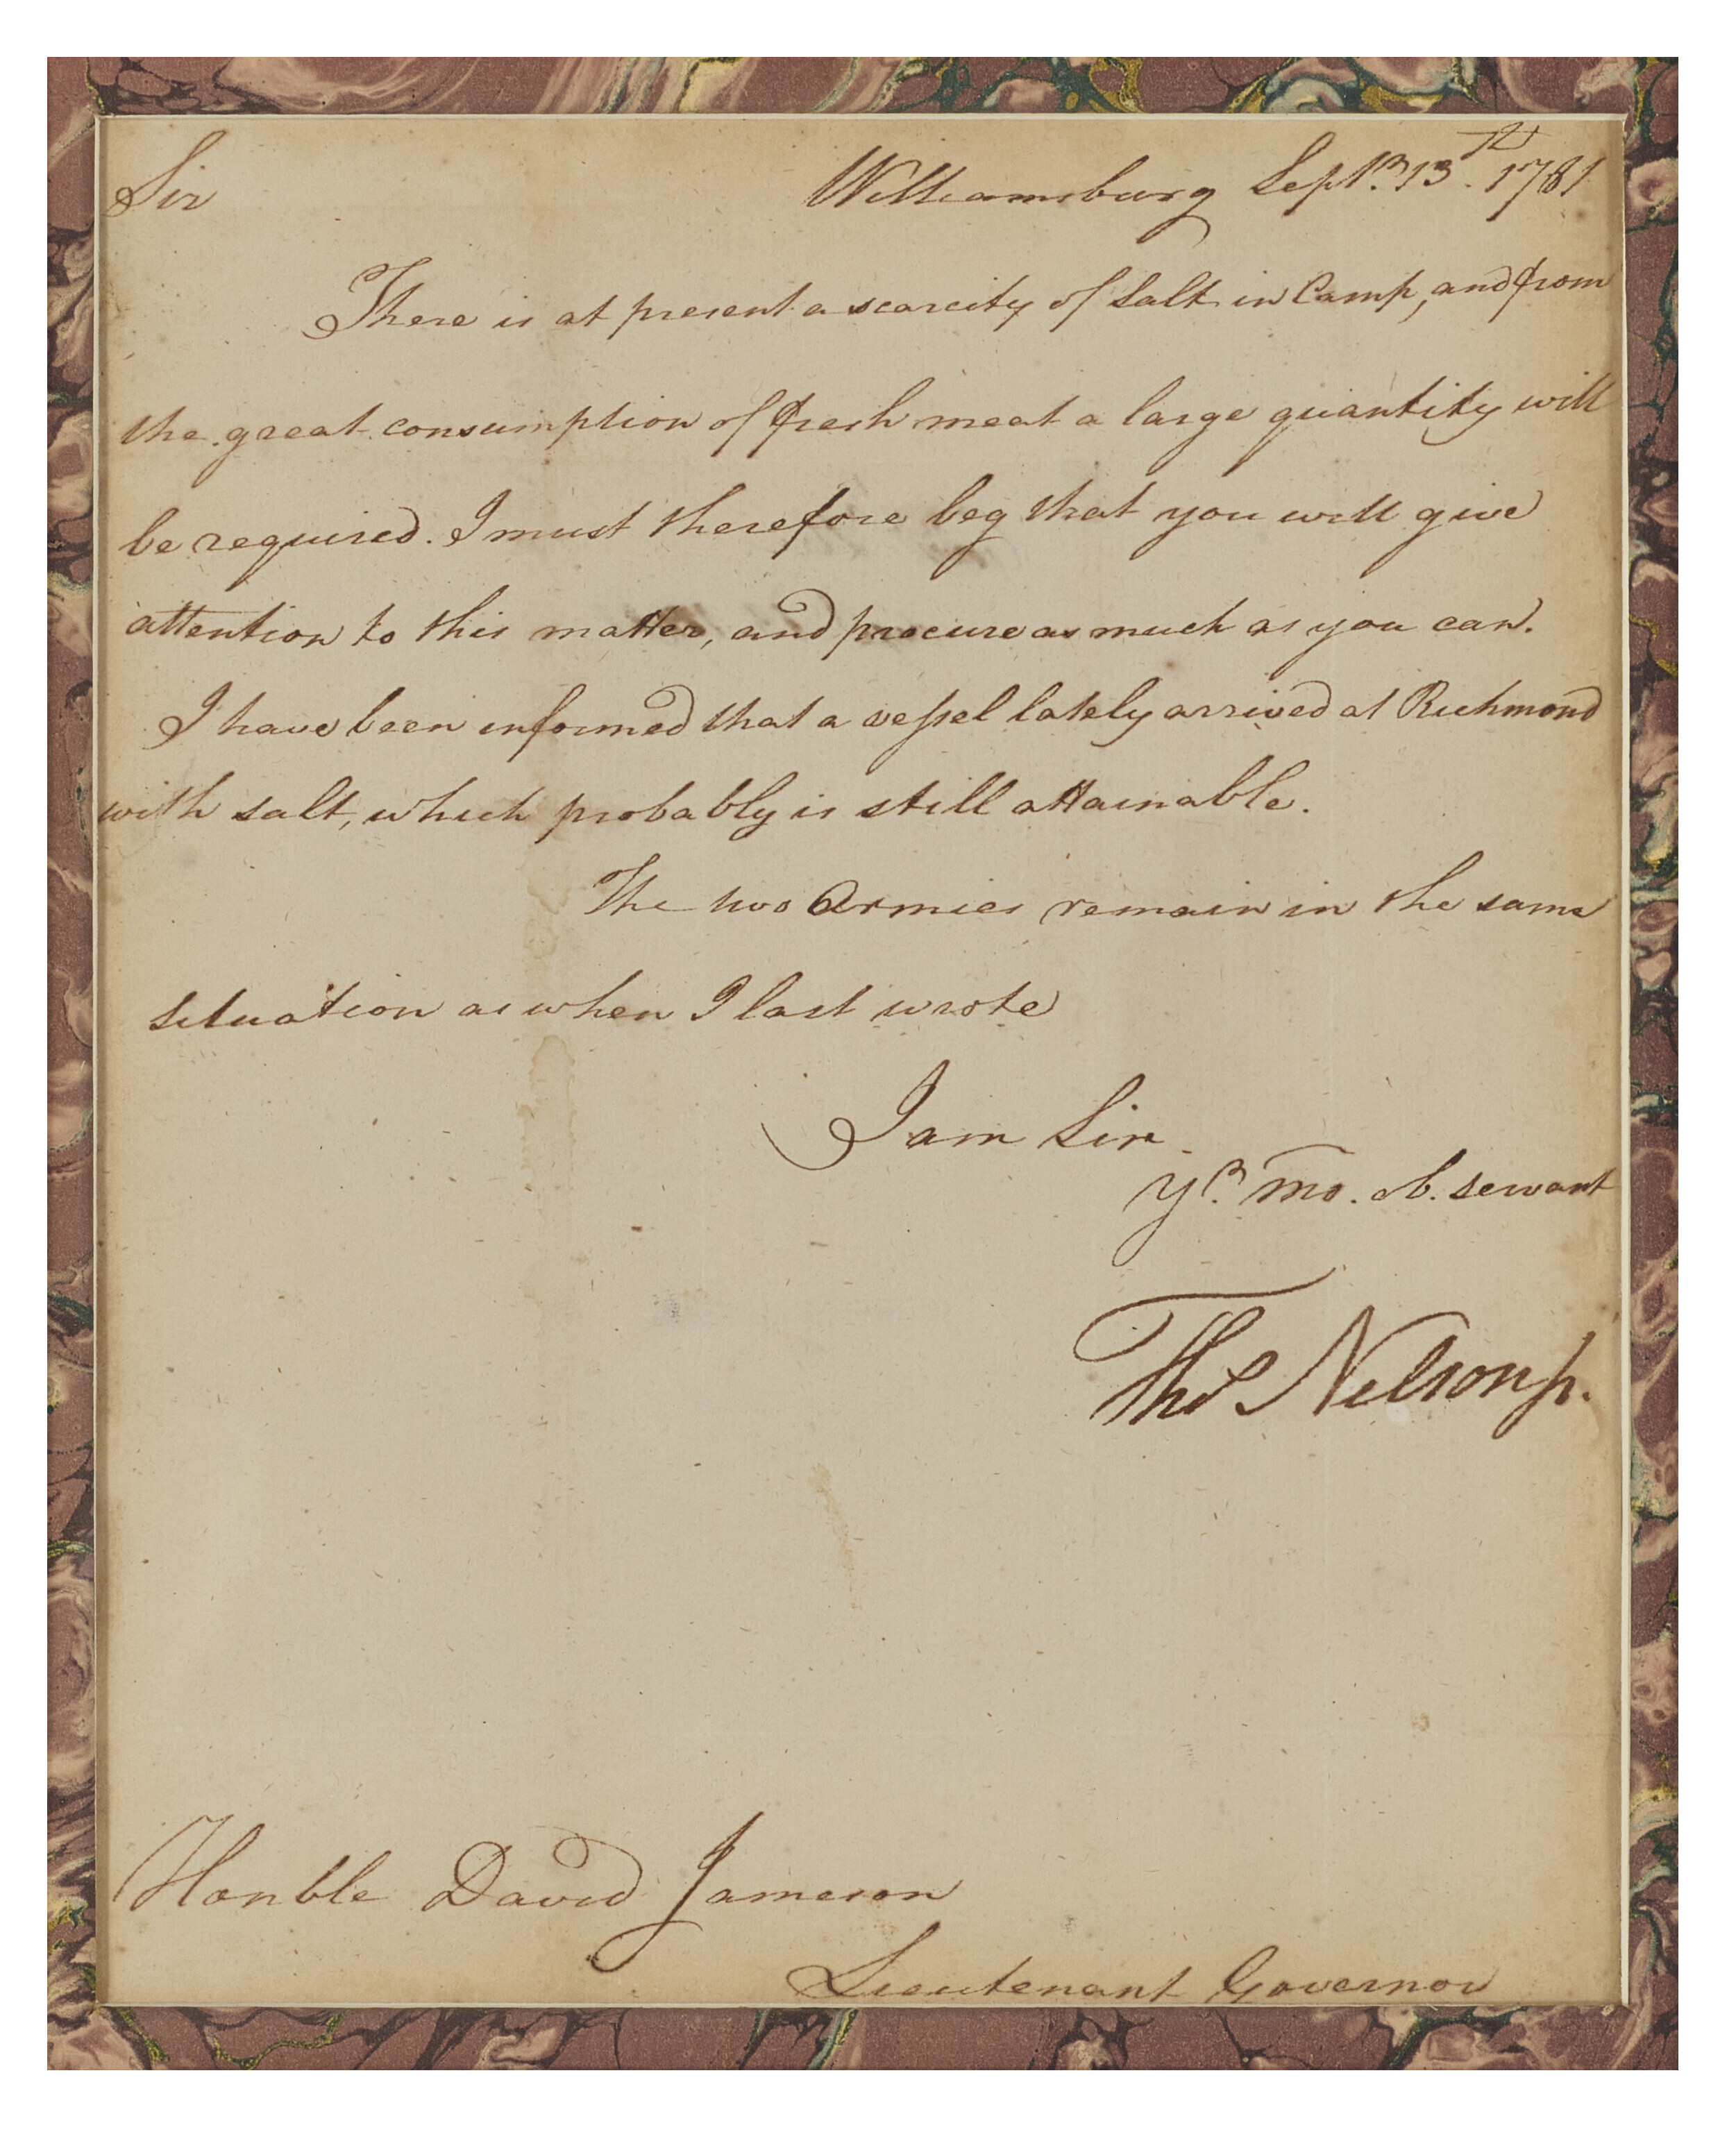 Sir
Williamsburg Septr. 13th. 1781
There is at present a scarcity of Salt in Camp, and from
the great consumption of fresh meat a large quantity will
be required. I must therefore beg that you will give
attention to this matter, and procure as much as you can.
I have been informed that a vessel lately arrived at Richmond
with salt, which probably is still attainable.
The two Armies remain in the same
situation as when I last wrote
I am Sir
Yr. mo. ob. servant
Thos Nelson jr.
Honble David Jameson
Lieutenant Governor